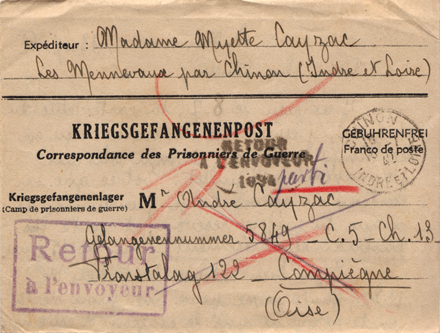 Expéditeur : Madame Myette Cayzac
Les Mennevaux par Chinon (Indre et Loire)
KRIEGSGEFANGENENPOST
Correspondance des Prisonniers de Guerre
GEBÜHRENFREI
Franco de poste
CHINON
INDRE & LOIRE
RETOUR
A L'ENVOYEUR
parti
Kriegsgefangenenlager
(Camp de prisonniers de guerre)
Mr André Cayzac
Gefangenennummer 5849 - C.5 - Ch.13
Frontstalag 122 - Compiègne
(Oise)
Retour
à l'envoyeur